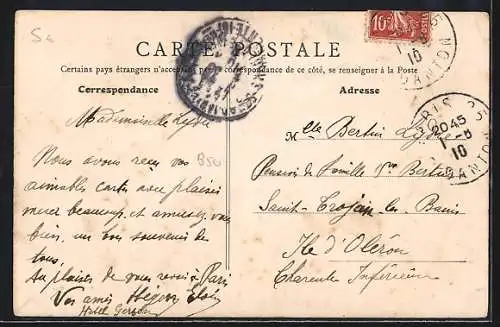 CARTE POSTALE
Certains pays étrangers n'acceptant pas de correspondance de ce côté, se renseigner à la Poste
Correspondance
Adresse
Mademoiselle Lydie
Nous avons reçu vos
aimables cartes avec plaisir
merci beaucoup, et amusez vous
bien, un bon souvenir de
tous.
Au plaisir de vous revoir à Paris
Vos amis
Hotel
B50
Mlle Bertin Lydie
Pension de famille Bertin
Saint-Trojan les Bains
Ile d'Oléron
Charente Inférieure
10
POSTES
PARIS
2045
10